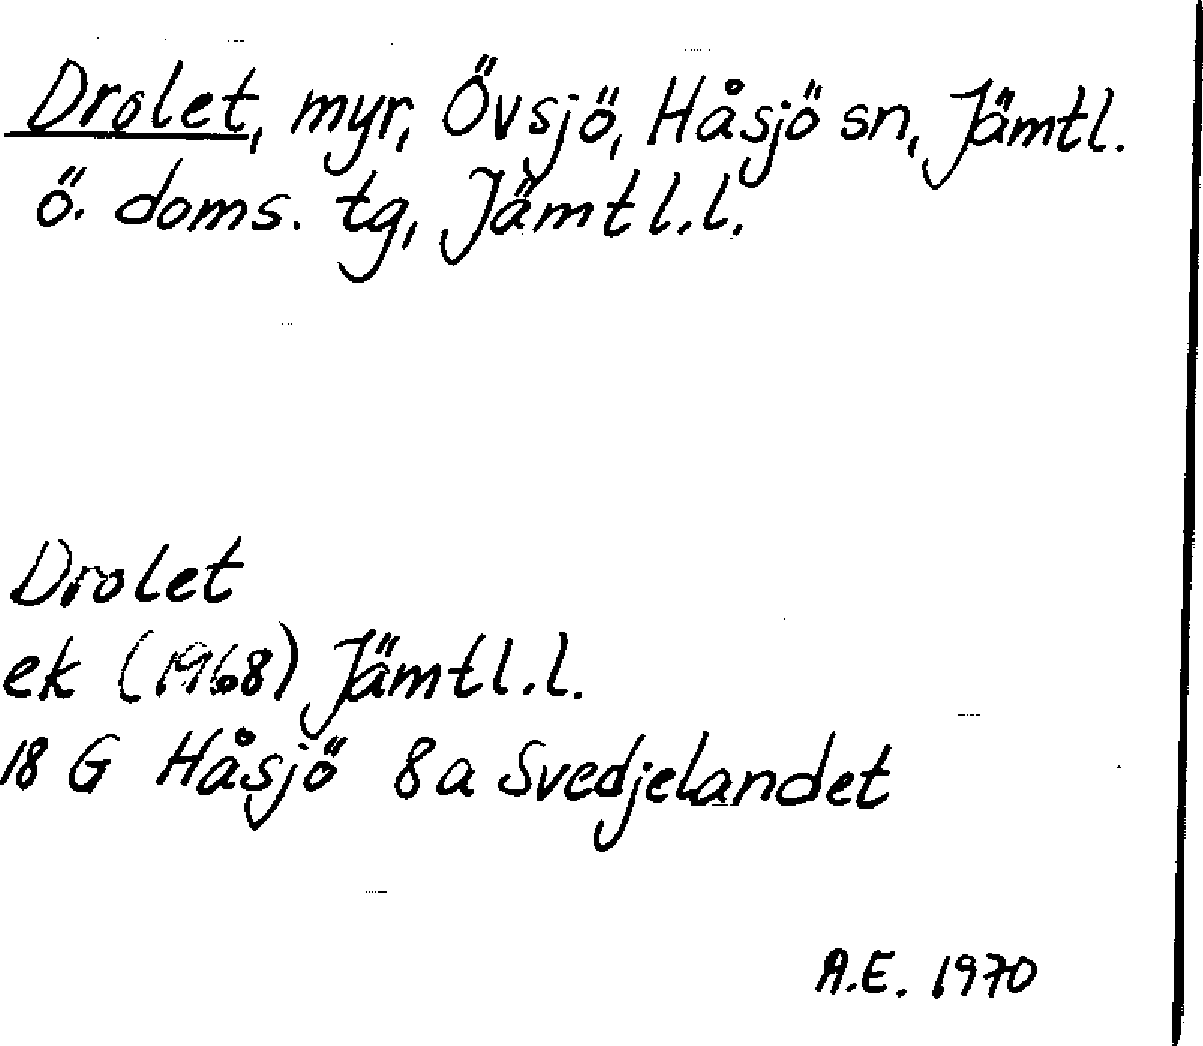 Drolet, myr, Övsjö, Håsjö sn, Jämtl.
ö. doms. tg, Jämtl.l.
Drolet
ek (1968) Jämtl.l.
18 G Håsjö 8a Svedjelandet
A.E. 1970